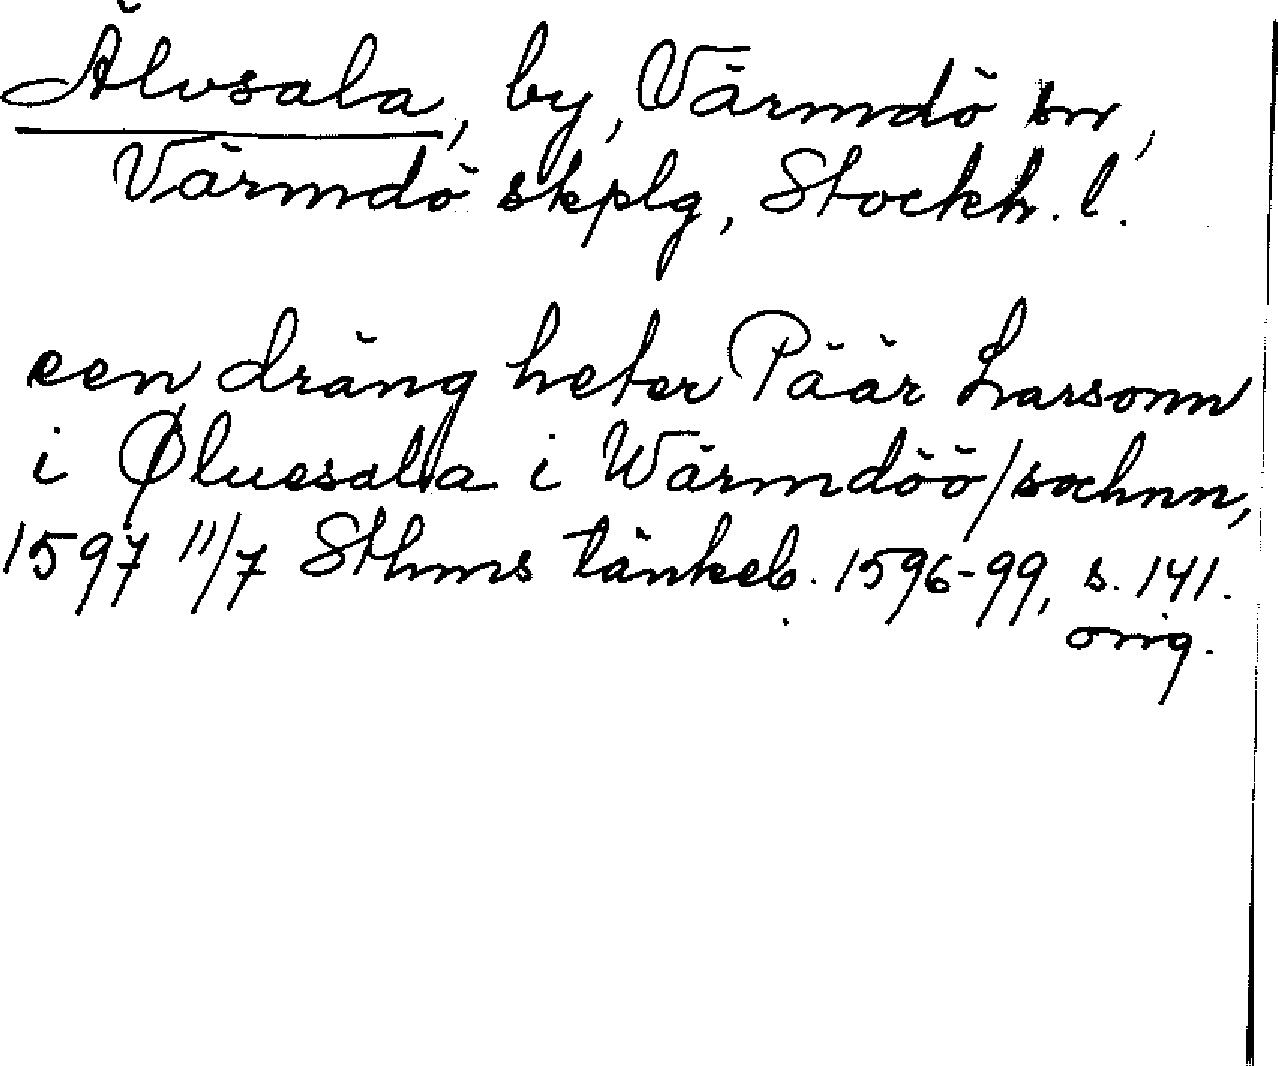 Älvsala, by, Värmdö sn,
Värmdö skplg, Stockh. l.
een dräng heter Päär Larsonn
i Øluesala i Wärmdöö/sochnn,
1597 11/7 Sthms tänkeb. 1596-99, s. 141.
orig.